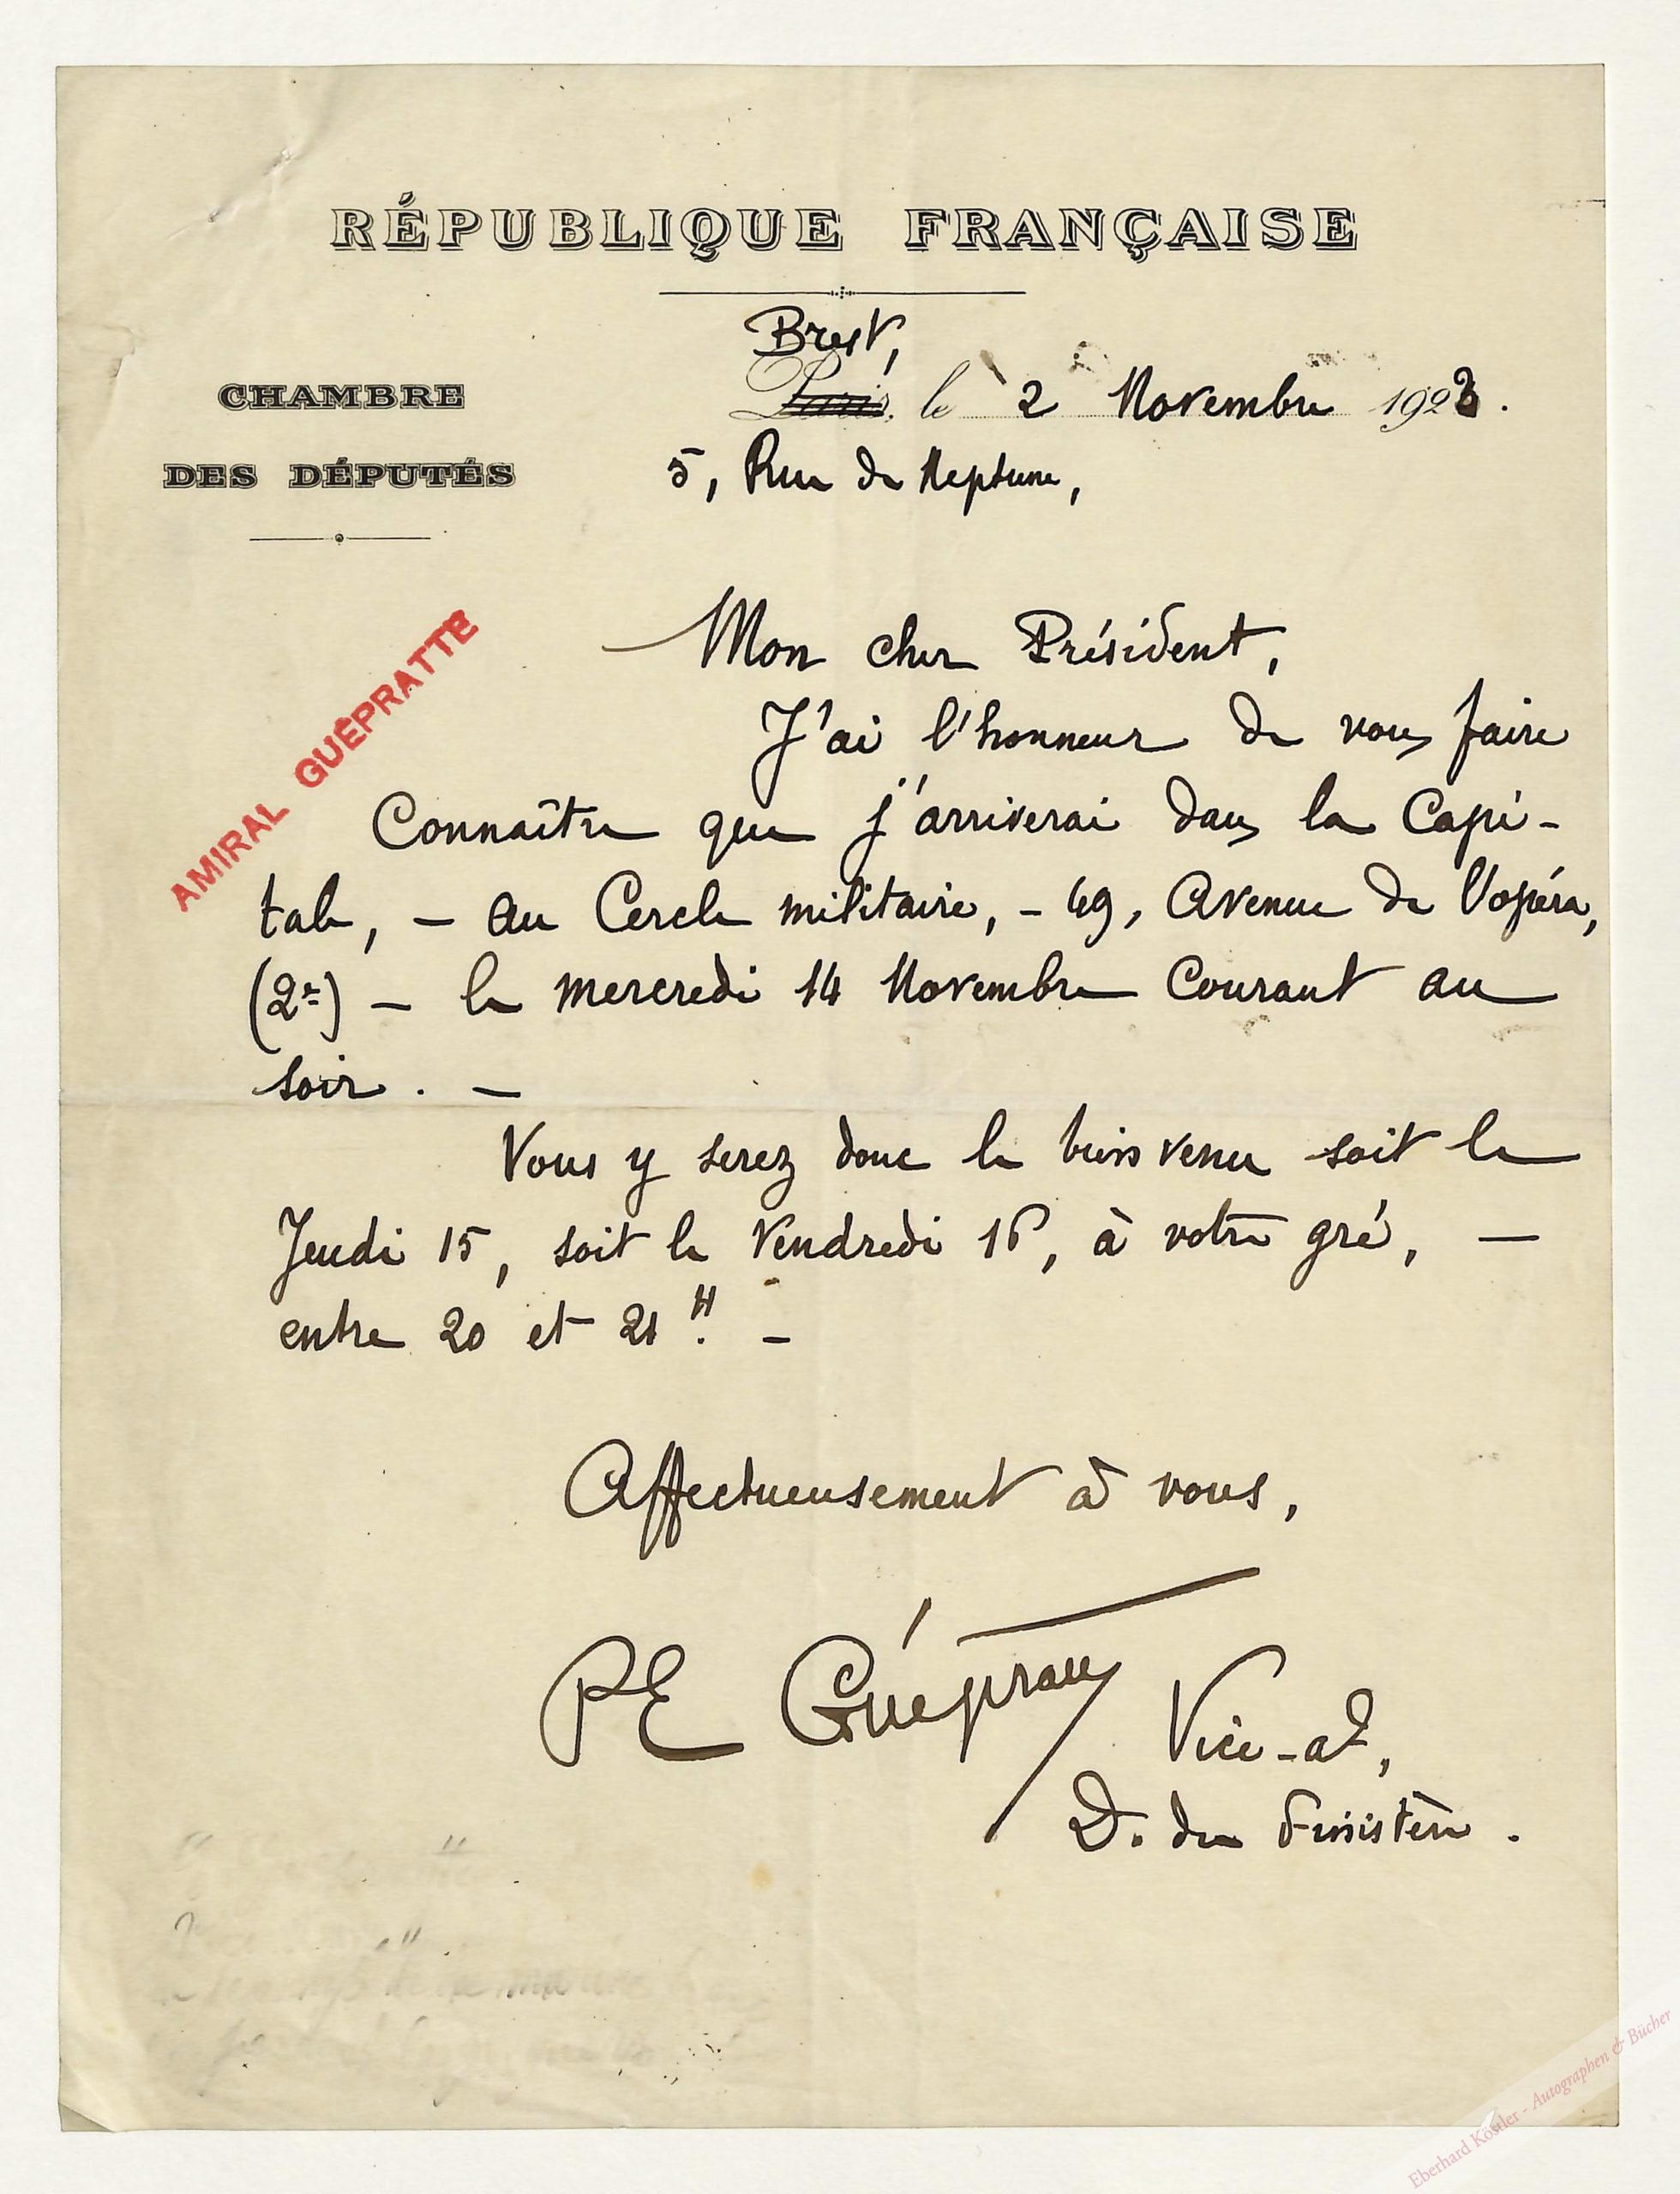 RÉPUBLIQUE FRANÇAISE
CHAMBRE
DES DÉPUTÉS
Brest,
Paris, le 2 Novembre 1923.
5, Rue de Neptune,
AMIRAL GUÉPRATTE
Mon cher Président,
J'ai l'honneur de vous faire
Connaître que j'arriverai dans la Capi-
tale, – au Cercle militaire, – 49, Avenue de l'Opéra,
(2e) – le mercredi 14 Novembre Courant au
soir. –
Vous y serez donc le bienvenu soit le
Jeudi 15, soit le Vendredi 16, à votre gré, –
entre 20 et 21 H. –
Affectueusement à vous,
PE Guépratte
Vice-al,
D. du Finistère.
Eberhard Köstler - Autographen & Bücher